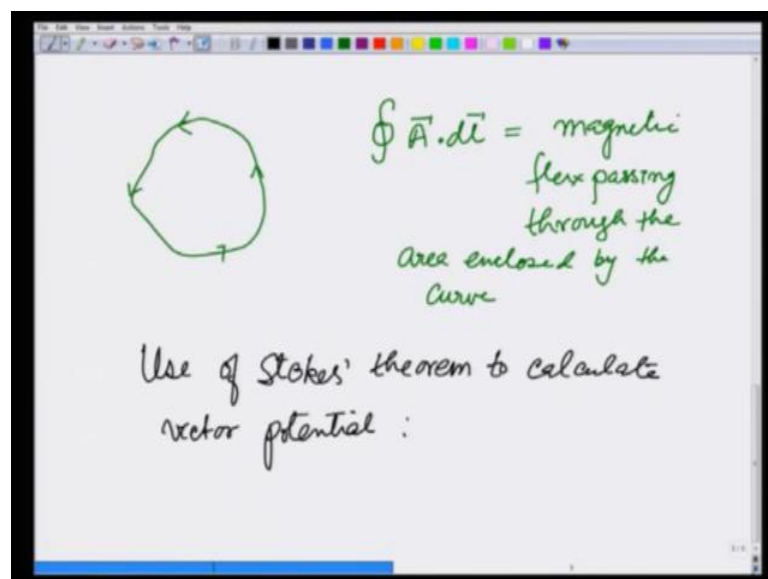 File Edit View Insert Actions Tools Help
∮ A⃗.dl⃗ = magnetic
flux passing
through the
area enclosed by the
curve
Use of Stokes' theorem to calculate
vector potential :